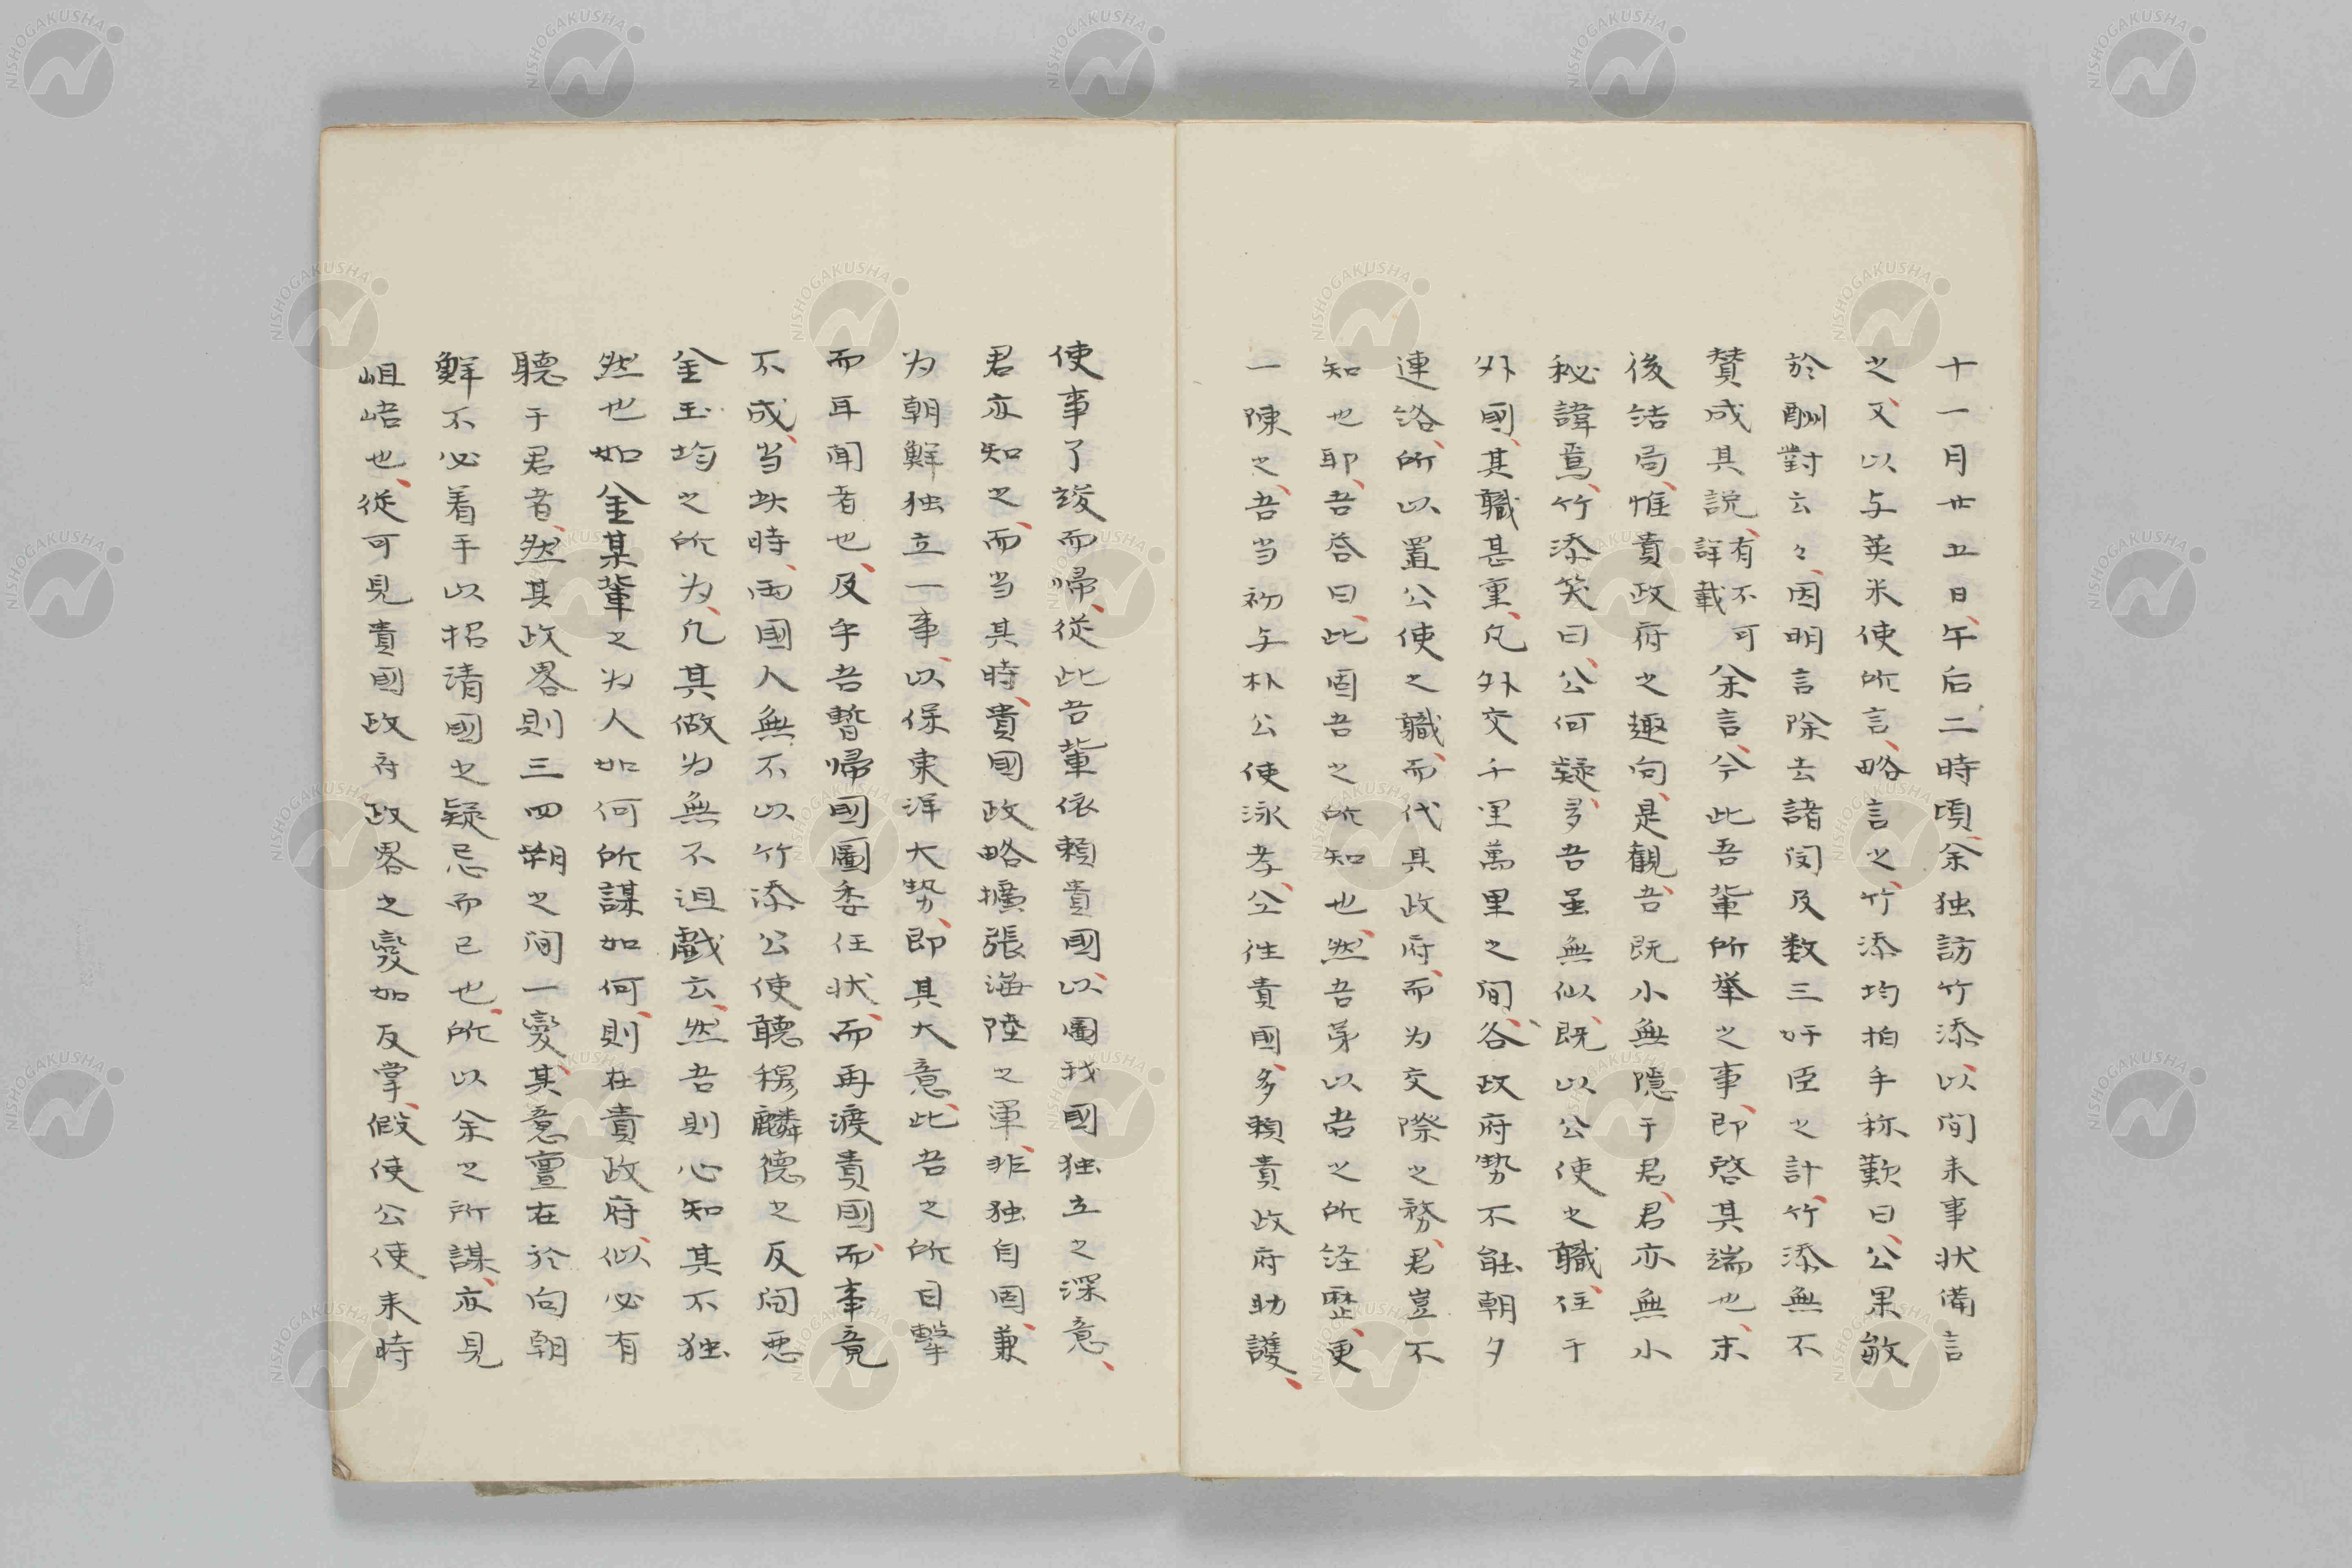 十一月廿五日、午后二時頃、余独訪竹添、以間来事状備言
之、又以与英米使所言、略言之、竹添均拍手称歎曰、公果敏
於酬對云々、因明言除去諸閔及数三奸臣之計、竹添無不
賛成其説、有不可詳載 余言、今此吾輩所挙之事、即啓其端也、末
後結局、惟貴政府之趣向、是観、吾既小無隠于君、君亦無小
秘諱焉、竹添笑曰、公何疑多、吾虽無似、既以公使之職、住于
外國、其職甚重、凡外交千里萬里之间、各政府勢不能朝夕
連洛、所以置公使之職、而代其政府、而为交際之務、君豈不
知也耶、吾答曰、此固吾之所知也、然吾第以吾之所経歴、更
一陳之、吾当初与朴公使泳孝公、往貴國、多頼貴政府助護、
使事了竣而帰、従此吾輩依頼貴國、以圖我國独立之深意、
君亦知之、而当其時、貴國政略擴張海陸之軍、非独自固、兼
为朝鮮独立一事、以保東洋大勢、即其大意、此吾之所目擊
而耳闻者也、及乎吾暫帰國圖委任状、而再渡貴國、而事竟
不成、当玆時、両國人無不以竹添公使聴穆麟德之反间悪
金玉均之所为、凡其做为無不沮戯云、然吾則心知其不独
然也、如金某輩之为人如何所謀如何、則在貴政府、似必有
聴于君者、然其政畧則三四朔之间一変、其意亶在於向朝
鮮不必着手以招清國之疑忌而已也、所以余之所謀、亦見
岨峿也、従可見貴國政府政畧之変如反掌、假使公使来時
NISHOGAKUSHA